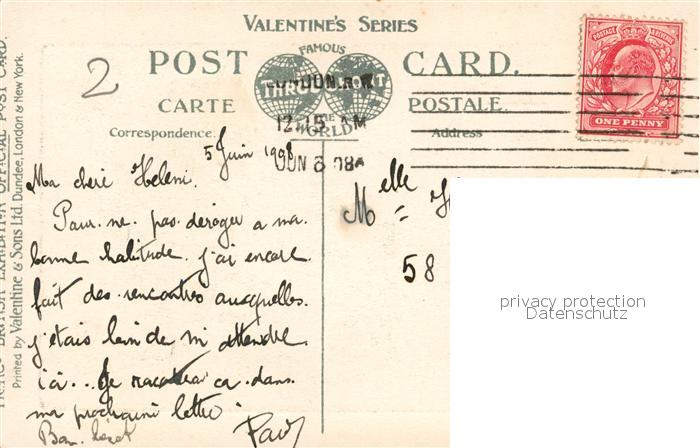 VALENTINE'S SERIES
2
POST CARD.
FAMOUS
THROUGHOUT
THE
WORLD
CARTE POSTALE.
Correspondence.
Address
LONDON. N.W
12.15 AM
JUN 6 08
POSTAGE & REVENUE
ONE PENNY
FRANCO BRITISH EXHIBITION OFFICIAL POST CARD.
Printed by Valentine & Sons Ltd. Dundee, London & New York.
5 Juin 1908
Ma chère Helene.
Pour ne pas deroger a ma
bonne habitude j'ai encore
fait des rencontres auxquelles
j'etais loin de m'attendre
ici... Je raconterai ça dans
ma prochaine lettre.
Bon
Paul
Melle H
58
privacy protection
Datenschutz